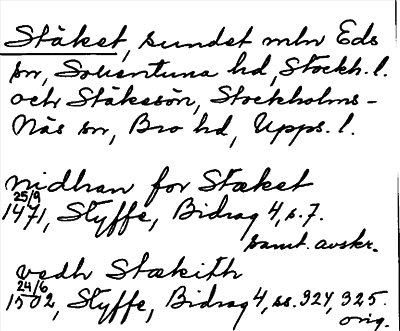 Stäket, sundet mln Eds
sn, Sollentuna hd, Stockh. l.
och Stäkesön, Stockholms-
Näs sn, Bro hd, Upps. l.
nidhan for Stæket
25/9
1471, Styffe, Bidrag 4, s. 7.
samt. avskr.
vedh Stækith
24/6
1502, Styffe, Bidrag 4, ss. 324, 325.
orig.